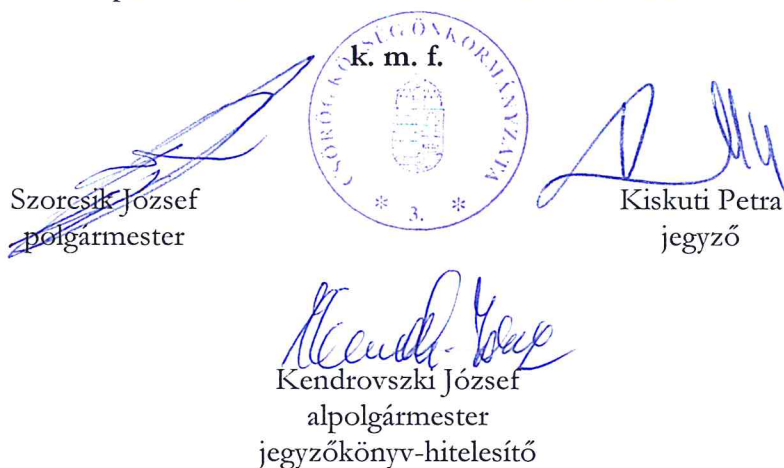 k. m. f.
CSÖRÖG KÖZSÉG ÖNKORMÁNYZATA
* 3. *
Szorcsik József
polgármester
Kiskuti Petra
jegyző
Kendrovszki József
alpolgármester
jegyzőkönyv-hitelesítő